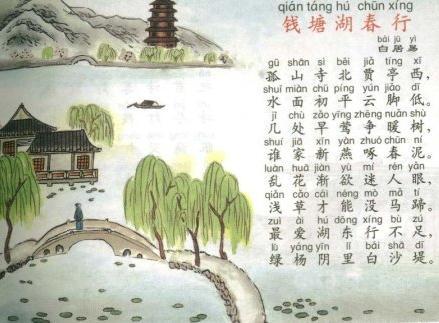 qián táng hú chūn xíng
钱塘湖春行
bái jū yì
白居易
gū shān sì běi jiǎ tíng xī
孤山寺北贾亭西，
shuǐ miàn chū píng yún jiǎo dī
水面初平云脚低。
jǐ chù zǎo yīng zhēng nuǎn shù
几处早莺争暖树，
shuí jiā xīn yàn zhuó chūn ní
谁家新燕啄春泥。
luàn huā jiàn yù mí rén yǎn
乱花渐欲迷人眼，
qiǎn cǎo cái néng mò mǎ tí
浅草才能没马蹄。
zuì ài hú dōng xíng bù zú
最爱湖东行不足，
lǜ yáng yīn lǐ bái shā dī
绿杨阴里白沙堤。